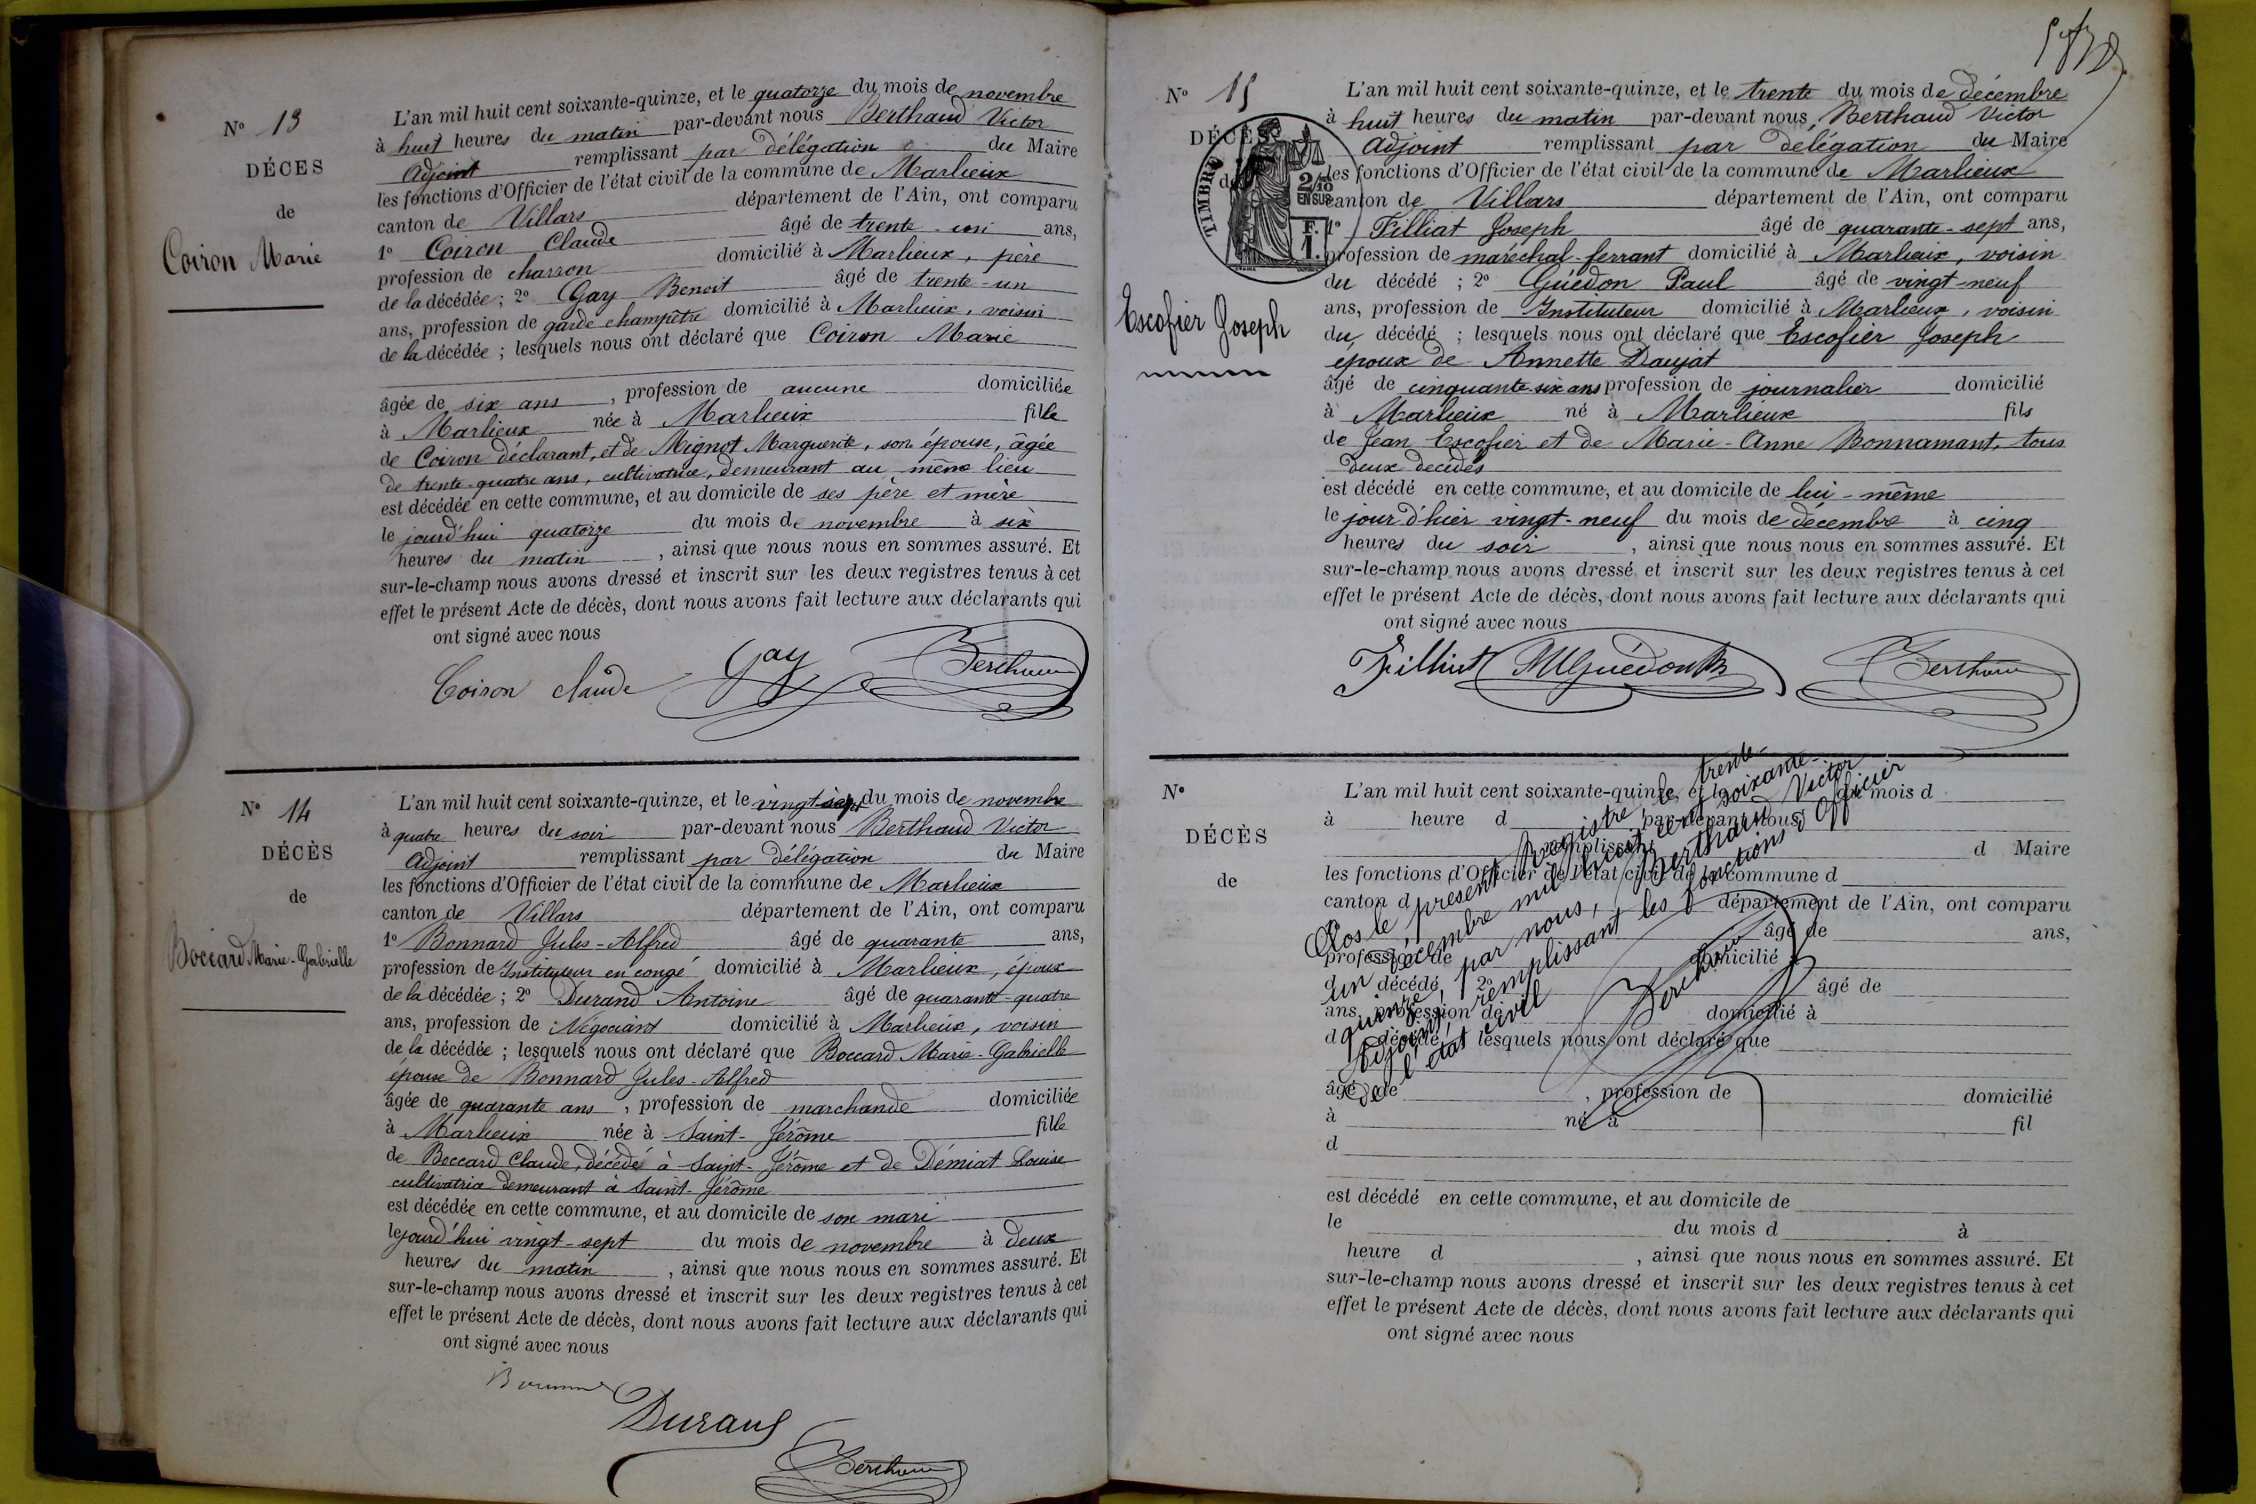 N° 13
DÉCES
de
Coiron Marie
L'an mil huit cent soixante-quinze, et le quatorze du mois de novembre
à huit heures du matin par-devant nous Berthaud Victor
Adjoint remplissant par délégation du Maire
les fonctions d'Officier de l'état civil de la commune de Marlieux
canton de Villars département de l'Ain, ont comparu
1° Coiron Claude âgé de trente-un ans,
profession de charron domicilié à Marlieux, père
de la décédée; 2° Gay Benoit âgé de trente-un
ans, profession de garde champêtre domicilié à Marlieux, voisin
de la décédée; lesquels nous ont déclaré que Coiron Marie
âgée de six ans, profession de aucune domiciliée
à Marlieux née à Marlieux fille
de Coiron déclarant, et de Mignot Marguerite, son épouse, âgée
de trente-quatre ans, cultivatrice, demeurant au même lieu
est décédée en cette commune, et au domicile de ses père et mère
le jourd'hui quatorze du mois de novembre à six
heures du matin, ainsi que nous nous en sommes assuré. Et
sur-le-champ nous avons dressé et inscrit sur les deux registres tenus à cet
effet le présent Acte de décès, dont nous avons fait lecture aux déclarants qui
ont signé avec nous
Coiron claude Gay Berthaud
N° 14
DÉCÈS
de
Boccard Marie-Gabrielle
L'an mil huit cent soixante-quinze, et le vingt-sept du mois de novembre
à quatre heures du soir par-devant nous Berthaud Victor
Adjoint remplissant par délégation du Maire
les fonctions d'Officier de l'état civil de la commune de Marlieux
canton de Villars département de l'Ain, ont comparu
1° Bonnard Jules-Alfred âgé de quarante ans,
profession de Instituteur en congé domicilié à Marlieux, époux
de la décédée; 2° Durand Antoine âgé de quarante-quatre
ans, profession de Négociant domicilié à Marlieux, voisin
de la décédée; lesquels nous ont déclaré que Boccard Marie-Gabrielle
épouse de Bonnard Jules-Alfred
âgée de quarante ans, profession de marchande domiciliée
à Marlieux née à Saint-Jérôme fille
de Boccard Claude, décédé à Saint-Jérôme et de Démiat Louise
cultivatrice demeurant à Saint-Jérôme
est décédée en cette commune, et au domicile de son mari
le jourd'hui vingt-sept du mois de novembre à deux
heures du matin, ainsi que nous nous en sommes assuré. Et
sur-le-champ nous avons dressé et inscrit sur les deux registres tenus à cet
effet le présent Acte de décès, dont nous avons fait lecture aux déclarants qui
ont signé avec nous
Durand
Berthaud
N° 15
DÉCÈS
de
TIMBRE
2/10
EN SUS
F.
1.
Escofier Joseph
L'an mil huit cent soixante-quinze, et le trente du mois de décembre
à huit heures du matin par-devant nous Berthaud Victor
Adjoint remplissant par délégation du Maire
les fonctions d'Officier de l'état civil de la commune de Marlieux
canton de Villars département de l'Ain, ont comparu
1° Filliat Joseph âgé de quarante-sept ans,
profession de maréchal-ferrant domicilié à Marlieux, voisin
du décédé; 2° Guédon Paul âgé de vingt-neuf
ans, profession de Instituteur domicilié à Marlieux, voisin
du décédé; lesquels nous ont déclaré que Escofier Joseph
époux de Annette Daujat
âgé de cinquante-six ans profession de journalier domicilié
à Marlieux né à Marlieux fils
de Jean Escofier et de Marie-Anne Bonnamant, tous
deux décédés
est décédé en cette commune, et au domicile de lui-même
le jour d'hier vingt-neuf du mois de décembre à cinq
heures du soir, ainsi que nous nous en sommes assuré. Et
sur-le-champ nous avons dressé et inscrit sur les deux registres tenus à cet
effet le présent Acte de décès, dont nous avons fait lecture aux déclarants qui
ont signé avec nous
Filliat Guédon Berthaud
N°
DÉCÈS
de
L'an mil huit cent soixante-quinze, et le du mois d
à heure d par-devant nous
remplissant d Maire
les fonctions d'Officier de l'état civil de la commune d
canton d département de l'Ain, ont comparu
âgé de ans,
profession de domicilié à
d décédé; 2° âgé de
ans, profession de domicilié à
d décédé; lesquels nous ont déclaré que
âgé de, profession de domicilié
à né à fil
d
est décédé en cette commune, et au domicile de
le du mois d à
heure d, ainsi que nous nous en sommes assuré. Et
sur-le-champ nous avons dressé et inscrit sur les deux registres tenus à cet
effet le présent Acte de décès, dont nous avons fait lecture aux déclarants qui
ont signé avec nous
Clos le présent Registre, le trente-
un décembre mil huit cent soixante-
quinze, par nous, Berthaud Victor
Adjoint remplissant les fonctions d'Officier
de l'état civil
Berthaud